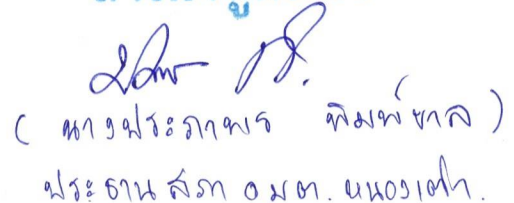 ( นางประภาพร พิมพ์ขาล )
ประธานสภา อบต. หนองเต่า.